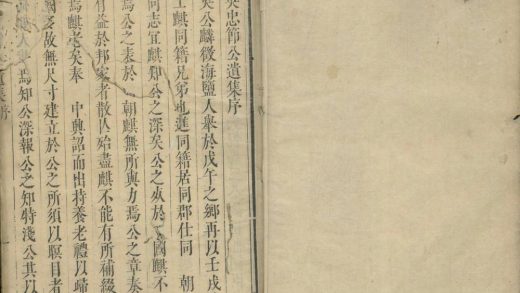 忠節公遺集序
公麟徵海鹽人舉於戊午之鄉再以壬戌
麒同籍兄弟也進同籍居同郡仕同 朝
同志宜麒知公之深矣公之 於 國麒不
焉公之表於 朝麒無所與力焉公之章奏
有益於邦家者散 殆盡麒不能有所補綴
焉麒老矣奉 中興詔而出持養老禮以歸
國 故無尺寸建立於公之所須以瞑目者
人 焉知公深報公之知特淺公其以
遺集序